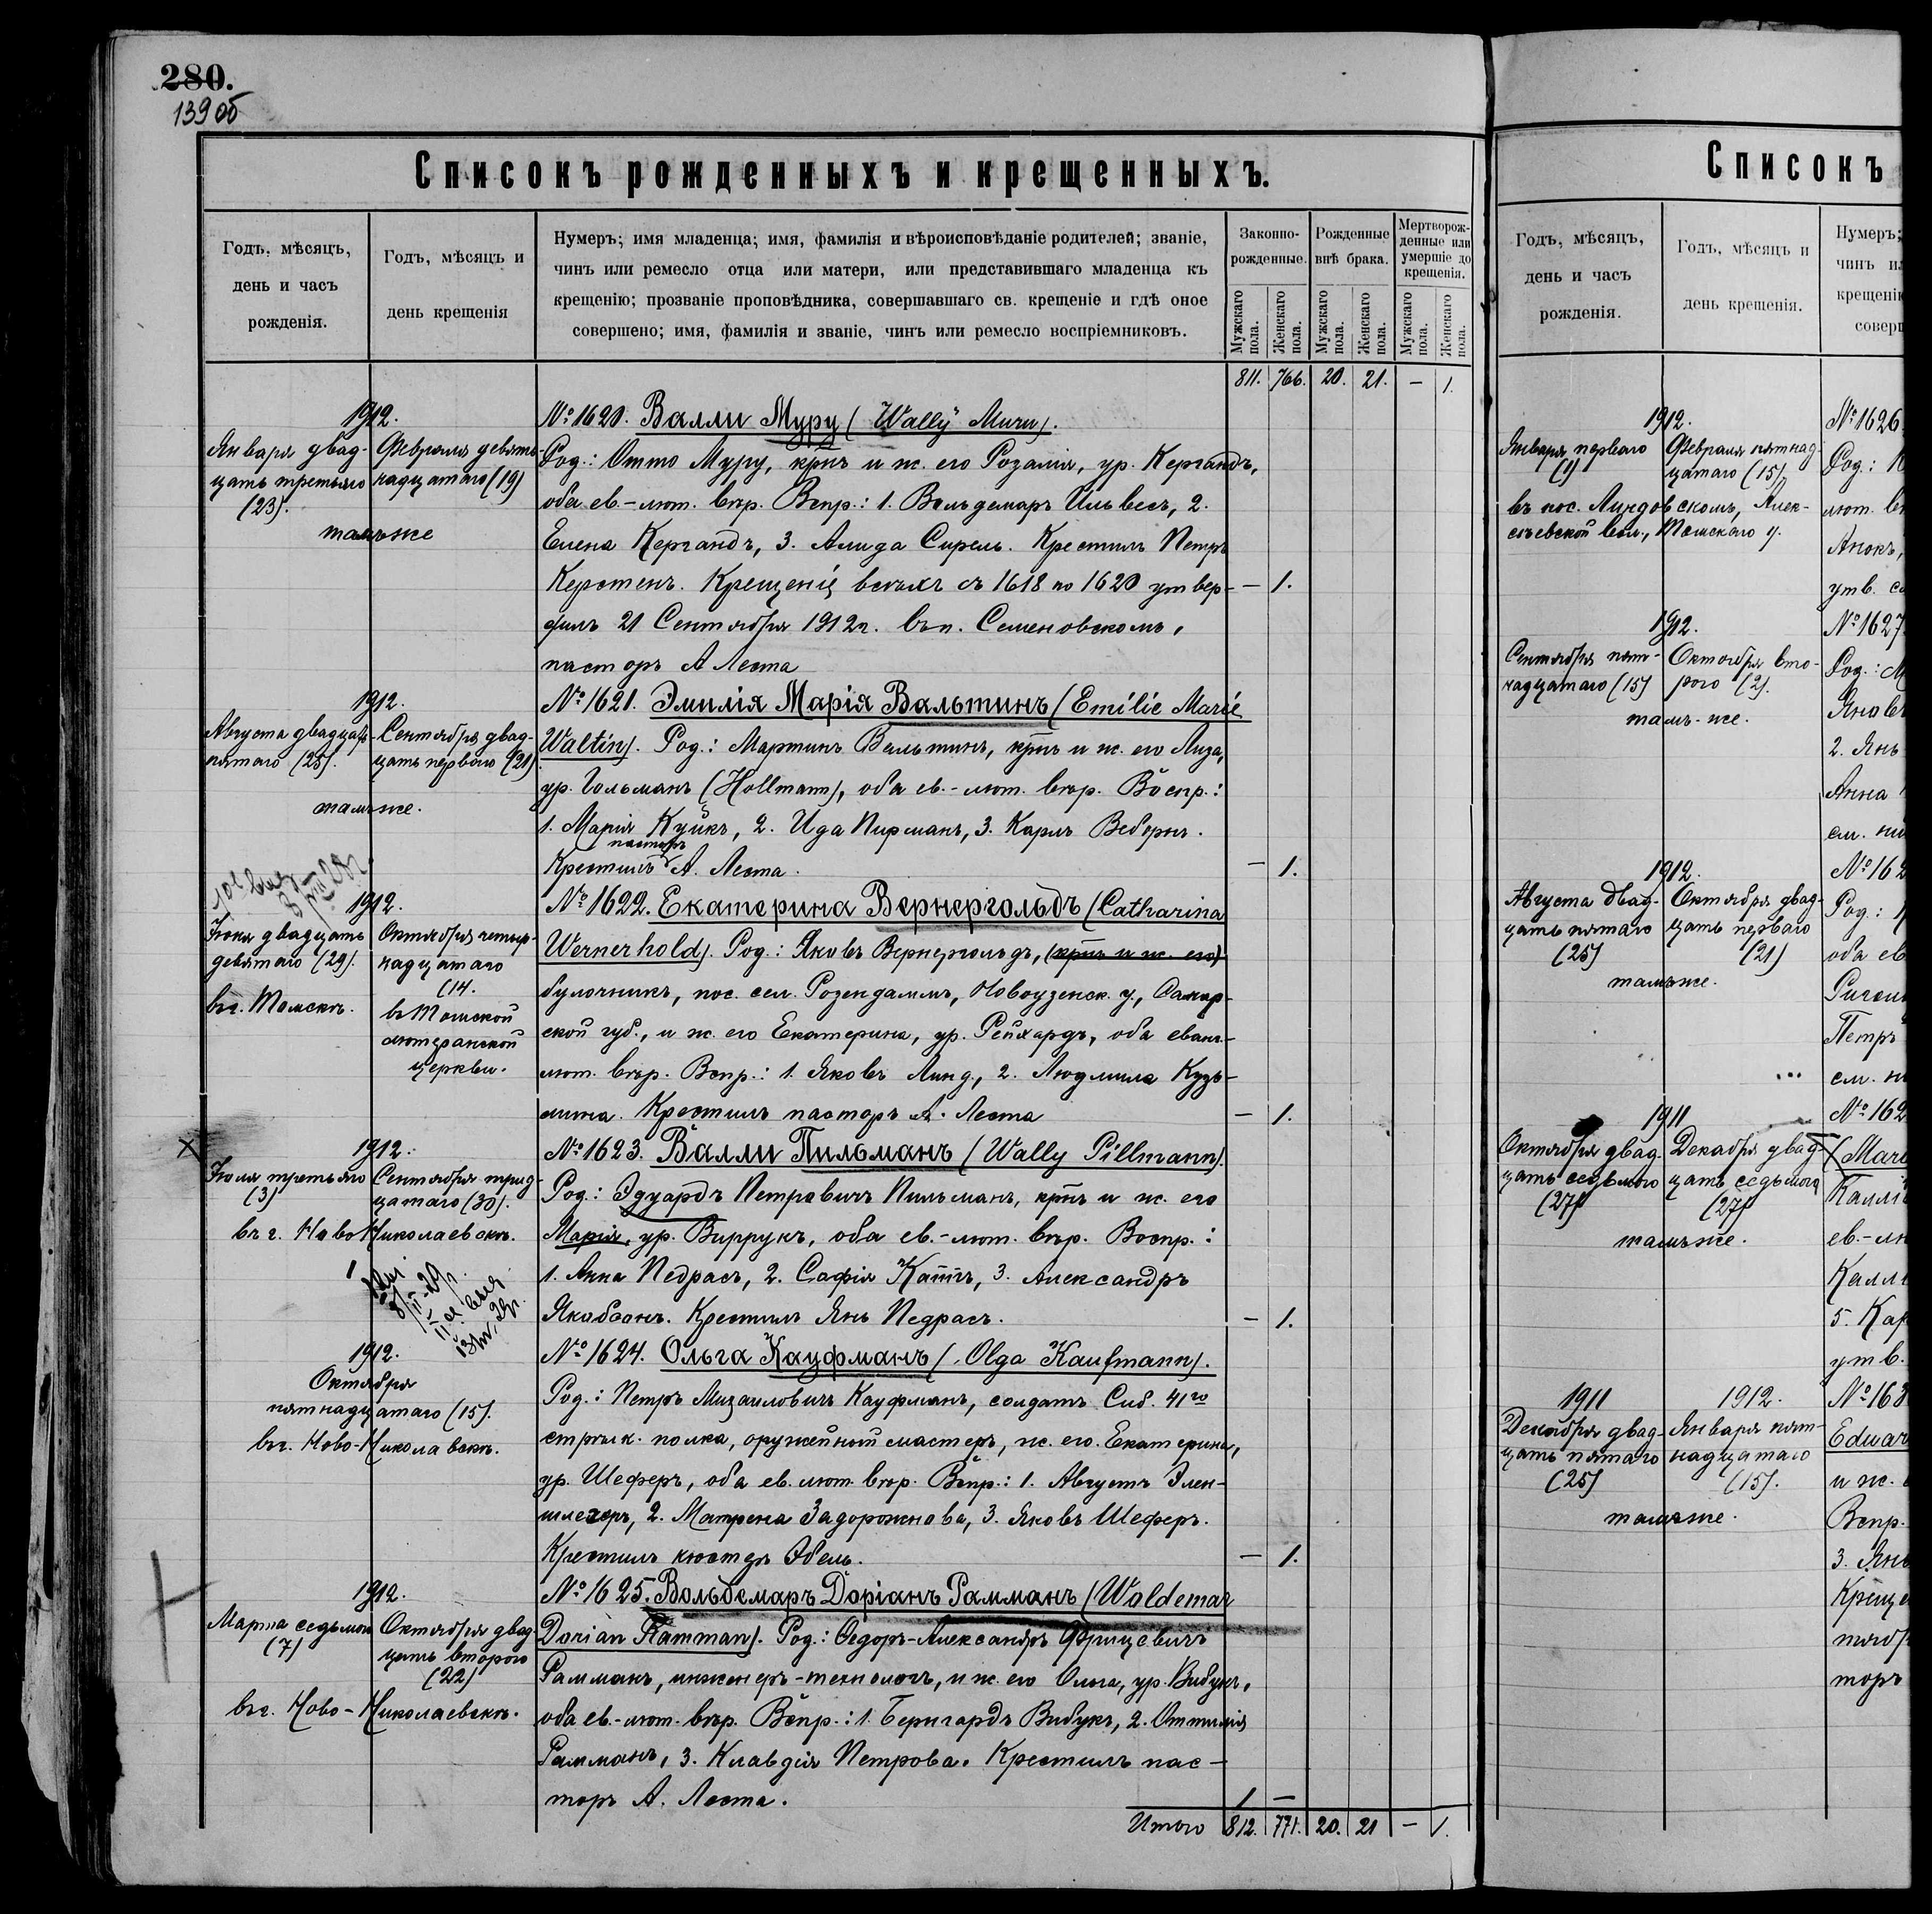 280.
139 об
Списокъ рожденныхъ и крещенныхъ.
Годъ, мѣсяцъ,
день и часъ
рожденія.
Годъ, мѣсяцъ и
день крещенія
Нумеръ; имя младенца; имя, фамилія и вѣроисповѣданіе родителей; званіе,
чинъ или ремесло отца или матери, или представившаго младенца къ
крещенію; прозваніе проповѣдника, совершавшаго св. крещеніе и гдѣ оное
совершено; имя, фамилія и званіе, чинъ или ремесло воспріемниковъ.
Законно-
рожденные.
Рожденные
внѣ брака.
Мертворож-
денные или
умершіе до
крещенія.
Мужскаго пола.
Женскаго пола.
Мужскаго пола.
Женскаго пола.
Мужскаго пола.
Женскаго пола.
811. 766. 20. 21. — 1.
1912.
Января двад-
цать третьяго
(23).
Февраля девят-
надцатаго (19)
тамъ же
№ 1620. Валли Муру (Wally Muru).
Род.: Отто Муру, крнъ и ж. его Розалія, ур. Кергандъ,
оба ев.-лют. вѣр. Вспр.: 1. Вольдемаръ Ильвесъ, 2.
Елена Кергандъ, 3. Алида Сирель. Крестилъ Петръ
Керстенъ. Крещеніе всѣхъ съ 1618 по 1620 утвер- — 1.
дилъ 21 Сентября 1912 г. въ п. Семеновскомъ,
пасторъ А Леста
1912.
Августа двадцать
пятаго (25).
Сентября двад-
цать перваго (21)
тамъ же.
№ 1621. Эмилія Марія Вальтинъ (Emilie Marie
Waltin). Род.: Мартинъ Вальтинъ, крнъ и ж. его Лиза,
ур. Гольманъ (Hollmann), оба ев.-лют. вѣр. Воспр.:
1. Марія Куйкъ, 2. Ида Пирманъ, 3. Карлъ Веберъ.
пасторъ
Крестилъ А. Леста. — 1.
1912.
Іюня двадцать
девятаго (29).
въ г. Томскѣ.
Октября четыр-
надцатаго
(14.
въ Томской
лютеранской
церкви.
№ 1622. Екатерина Вернергольдъ (Catharina
Wernerhold). Род.: Яковъ Вернергольдъ, (крнъ и ж. его)
булочникъ, пос. сел. Розендаммъ, Новоузенск. у., Самар-
ской губ., и ж. его Екатерина, ур. Рейхардъ, оба еванг.-
лют. вѣр. Вспр.: 1. Яковъ Линд, 2. Людмила Кузь-
мина. Крестилъ пасторъ А. Леста — 1.
X
1912.
Іюля третьяго
(3)
Сентября трид-
цатаго (30).
въ г. Ново Николаевскѣ.
№ 1623. Валли Пильманъ (Wally Pillmann).
Род.: Эдуардъ Петровичъ Пильманъ, крнъ и ж. его
Марія, ур. Виррукъ, оба ев.-лют. вѣр. Воспр.:
1. Анна Педрасъ, 2. Софія Каттъ, 3. Александръ
Якобсонъ. Крестилъ Янъ Педрасъ. — 1.
1912.
Октября
пятнадцатаго (15).
въ г. Ново-Никола вскѣ.
№ 1624. Ольга Кауфманъ (Olga Kaufmann).
Род.: Петръ Михаиловичъ Кауфманъ, солдатъ Сиб. 41го
стрѣлк. полка, оружейный мастеръ, ж. его Екатерина,
ур. Шеферъ, оба ев. лют. вѣр. Вспр.: 1. Августъ Элен-
шлегеръ, 2. Матрена Задорожнова, 3. Яковъ Шеферъ.
Крестилъ кюстеръ Эбель. — 1.
1912.
Марта седьмого
(7)
Октября двад-
цать второго
(22)
въ г. Ново-Николаевскѣ.
№ 1625. Вольдемаръ Доріанъ Рамманъ (Waldemar
Dorian Ramman). Род.: Ѳедоръ-Александръ Фрицевичъ
Рамманъ, инженеръ-технологъ, и ж. его Ольга, ур. Вибукъ,
оба ев.-лют. вѣр. Вспр.: 1. Бернгардъ Вибукъ, 2. Оттилія
Рамманъ, 3. Клавдія Петрова. Крестилъ пас-
торъ А. Леста. 1 —
Итого 812. 771. 20. 21 — 1.
Списокъ
Годъ, мѣсяцъ,
день и часъ
рожденія.
Годъ, мѣсяцъ и
день крещенія.
Нумеръ;
чинъ ил
крещенію
соверш
1912.
Января перваго
(1)
Февраля пятнад-
цатаго (15),
въ пос. Линдовскомъ, Алек-
сѣевской вол., Томскаго у.
№ 1626
Род.:
лют. в
утв.
1912.
Сентября пят-
надцатаго (15)
Октября вто-
рого (2).
тамъ-же.
№ 1627.
Род.: М
2. Янъ
Анна
см. ни
1912.
Августа двад-
цать пятаго
(25)
Октября двад-
цать перваго
(21)
тамъ же.
№ 162
Род.:
оба ев
Петръ
см. н
1911
Октября двад-
цать седьмого
(27)
Декабря двад-
цать седьмого
(27)
тамъ же.
№ 162
(Mar
ев.-лю
Калл
5. Кар
утв.
1911
Декабря двад-
цать пятаго
(25)
1912.
Января пят-
надцатаго
(15).
тамъ же.
№ 163
Eduar
и ж.
Вспр.
3. Ян
Креще
тяб
торъ